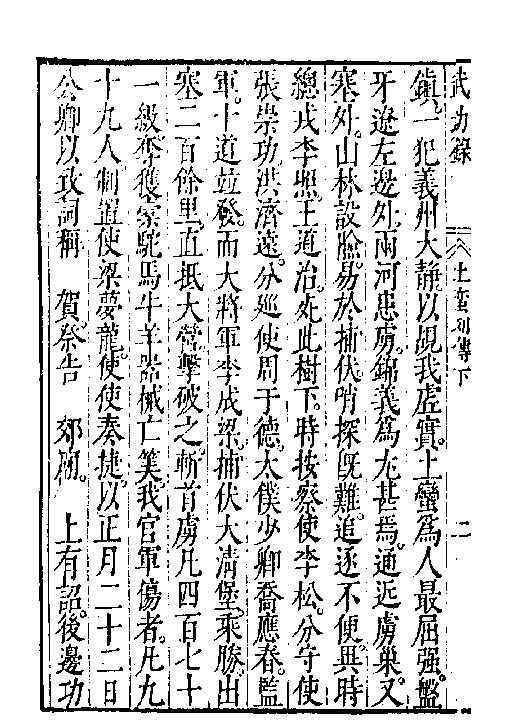 武功錄 土蠻列傳下 二
鎮一犯義州大靜以覘我虛實土蠻爲人最屈强盤
牙遼左邊外兩河患虜錦義爲尤甚焉通近虜巢又
塞外山林設險易於捕伏哨探旣難追逐不便異時
總戎李照王道治死此樹下時按察使李松分守使
張崇功洪濟遠分巡使周于德太僕少卿喬應春監
軍十道並發而大將軍李成梁捕伏大清堡乘勝出
塞二百餘里直抵大營擊破之斬首虜凡四百七十
一級奪獲橐駝馬牛羊器械亡筭我官軍傷者凡九
十九人制置使梁夢龍使使奏捷以正月二十二日
公卿以致詞稱 賀祭告 郊廟 上有詔後邊功